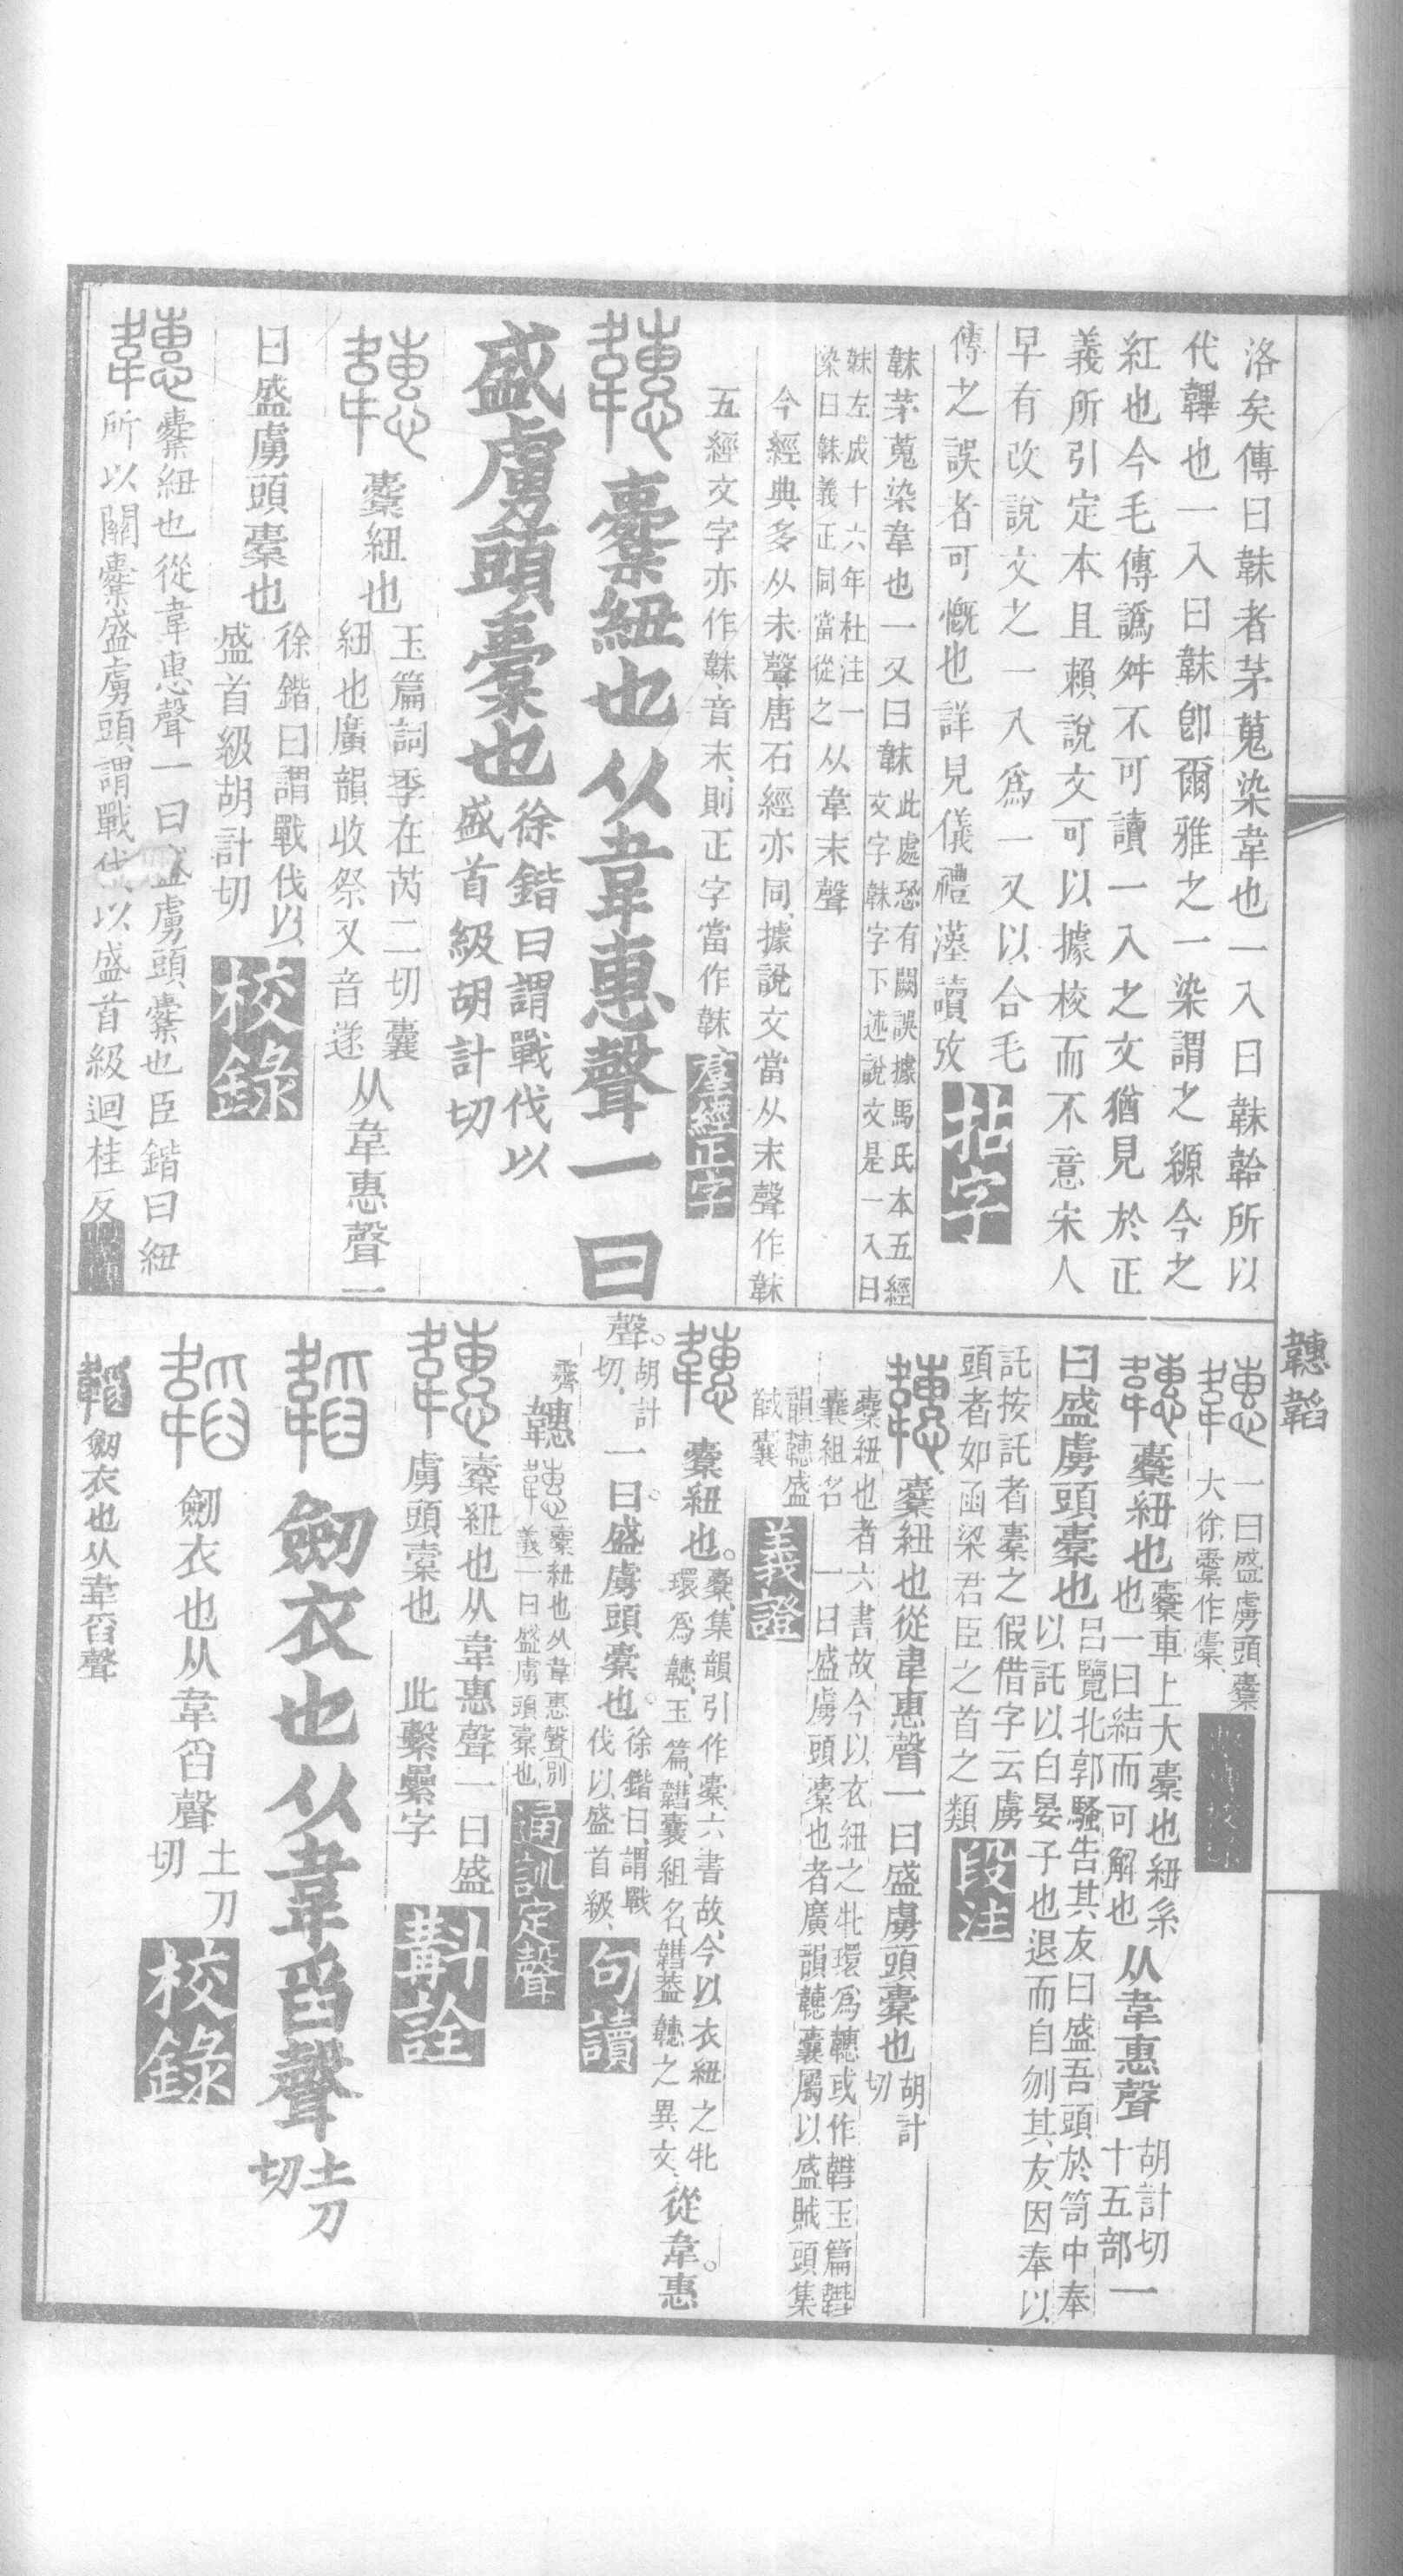 洛矣傳曰韎者茅蒐染韋也一入曰韎韐所以
代韠也一入曰韎卽爾雅之一染謂之縓今之
紅也今毛傳譌舛不可讀一入之文猶見於正
義所引定本且賴說文可以據校而不意宋人
早有改說文之一入爲一又以合毛
傳之誤者可慨也詳見儀禮漢讀攷
韎茅蒐染韋也一又曰韎
此處恐有闕誤據馬氏本五經
文字韎字下述說文是一入曰
韎左成十六年杜注一
染曰韎義正同當從之
从韋末聲
今經典多从未聲唐石經亦同據說文當从末聲作韎
五經文字亦作韎音末則正字當作韎
羣經正字
橐紐也从韋惠聲一曰
盛虜頭橐也
徐鍇曰謂戰伐以
盛首級胡計切
橐紐也
玉篇詞季在芮二切囊
紐也廣韻收祭又音遂
从韋惠聲一
曰盛虜頭橐也
徐鍇曰謂戰伐以
盛首級胡計切
校錄
橐紐也從韋惠聲一曰盛虜頭橐也臣鍇曰紐
所以關橐盛虜頭謂戰伐以盛首級迴桂反
韢韜
一曰盛虜頭橐
大徐橐作橐
橐紐也
橐車上大橐也紐系
也一曰結而可解也
从韋惠聲
胡計切
十五部
一
曰盛虜頭橐也
呂覽北郭騷告其友曰盛吾頭於笥中奉
以託以白晏子也退而自刎其友因奉以
託按託者橐之假借字云虜
頭者如函梁君臣之首之類
段注
橐紐也從韋惠聲一曰盛虜頭橐也
胡計
切
橐紐也者六書故今以衣紐之牝環爲韢或作㩦玉篇㩦
囊組名 一曰盛虜頭橐也者廣韻韢囊屬以盛賊頭集
韻韢盛
馘囊
義證
橐紐也。
橐集韻引作橐六書故今以衣紐之牝
環爲韢玉篇㩦囊組名㩦葢韢之異文
從韋惠
聲。
胡計
切
一曰盛虜頭橐也。
徐鍇曰謂戰
伐以盛首級
句讀
韢
橐紐也从韋惠聲別
義一曰盛虜頭橐也
通訓定聲
橐紐也从韋惠聲一曰盛
虜頭橐也 此繫纍字
斠詮
劒衣也从韋舀聲
土刀
切
劒衣也从韋舀聲
土刀
切
校錄
劒衣也从韋舀聲